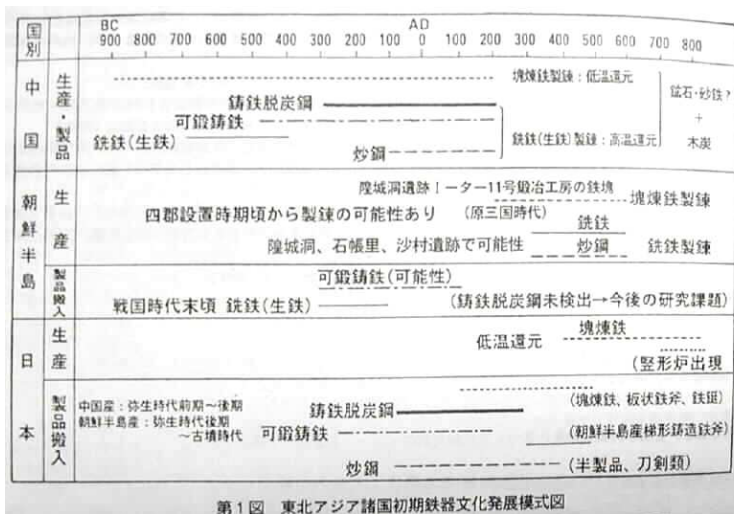 国別
BC
AD
900 800 700 600 500 400 300 200 100 0 100 200 300 400 500 600 700 800
中国
生産・製品
塊煉鉄製錬:低温還元
鋳鉄脱炭鋼
可鍛鋳鉄
銑鉄(生鉄)
炒鋼
銑鉄(生鉄)製錬:高温還元
鉱石・砂鉄?
+
木炭
朝鮮半島
生産
隍城洞遺跡Ⅰーター11号鍛冶工房の鉄塊
塊煉鉄製錬
四郡設置時期頃から製錬の可能性あり
(原三国時代)
銑鉄
隍城洞、石帳里、沙村遺跡で可能性
炒鋼
銑鉄製錬
製品搬入
可鍛鋳鉄(可能性)
戦国時代末頃 銑鉄(生鉄)
(鋳鉄脱炭鋼未検出→今後の研究課題)
日本
生産
塊煉鉄
低温還元
(竪形炉出現
製品搬入
中国産:弥生時代前期~後期
朝鮮半島産:弥生時代後期
~古墳時代
(塊煉鉄、板状鉄斧、鉄鋌)
鋳鉄脱炭鋼
可鍛鋳鉄
(朝鮮半島産梯形鋳造鉄斧)
炒鋼
(半製品、刀剣類)
第1図 東北アジア諸国初期鉄器文化発展模式図